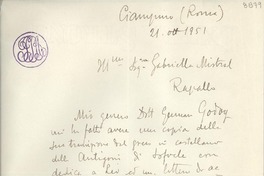 8879
Ciampino (Roma)
21. ott 1951
Sig.na Gabriella Mistral
Rapallo
Mio genero Dott German Godoy
mi ha fatto avere una copia della
sua traduzione dal greco in castellano
dell'Antigone di Sofocle con
dedica a Lei ed una lettera di ac